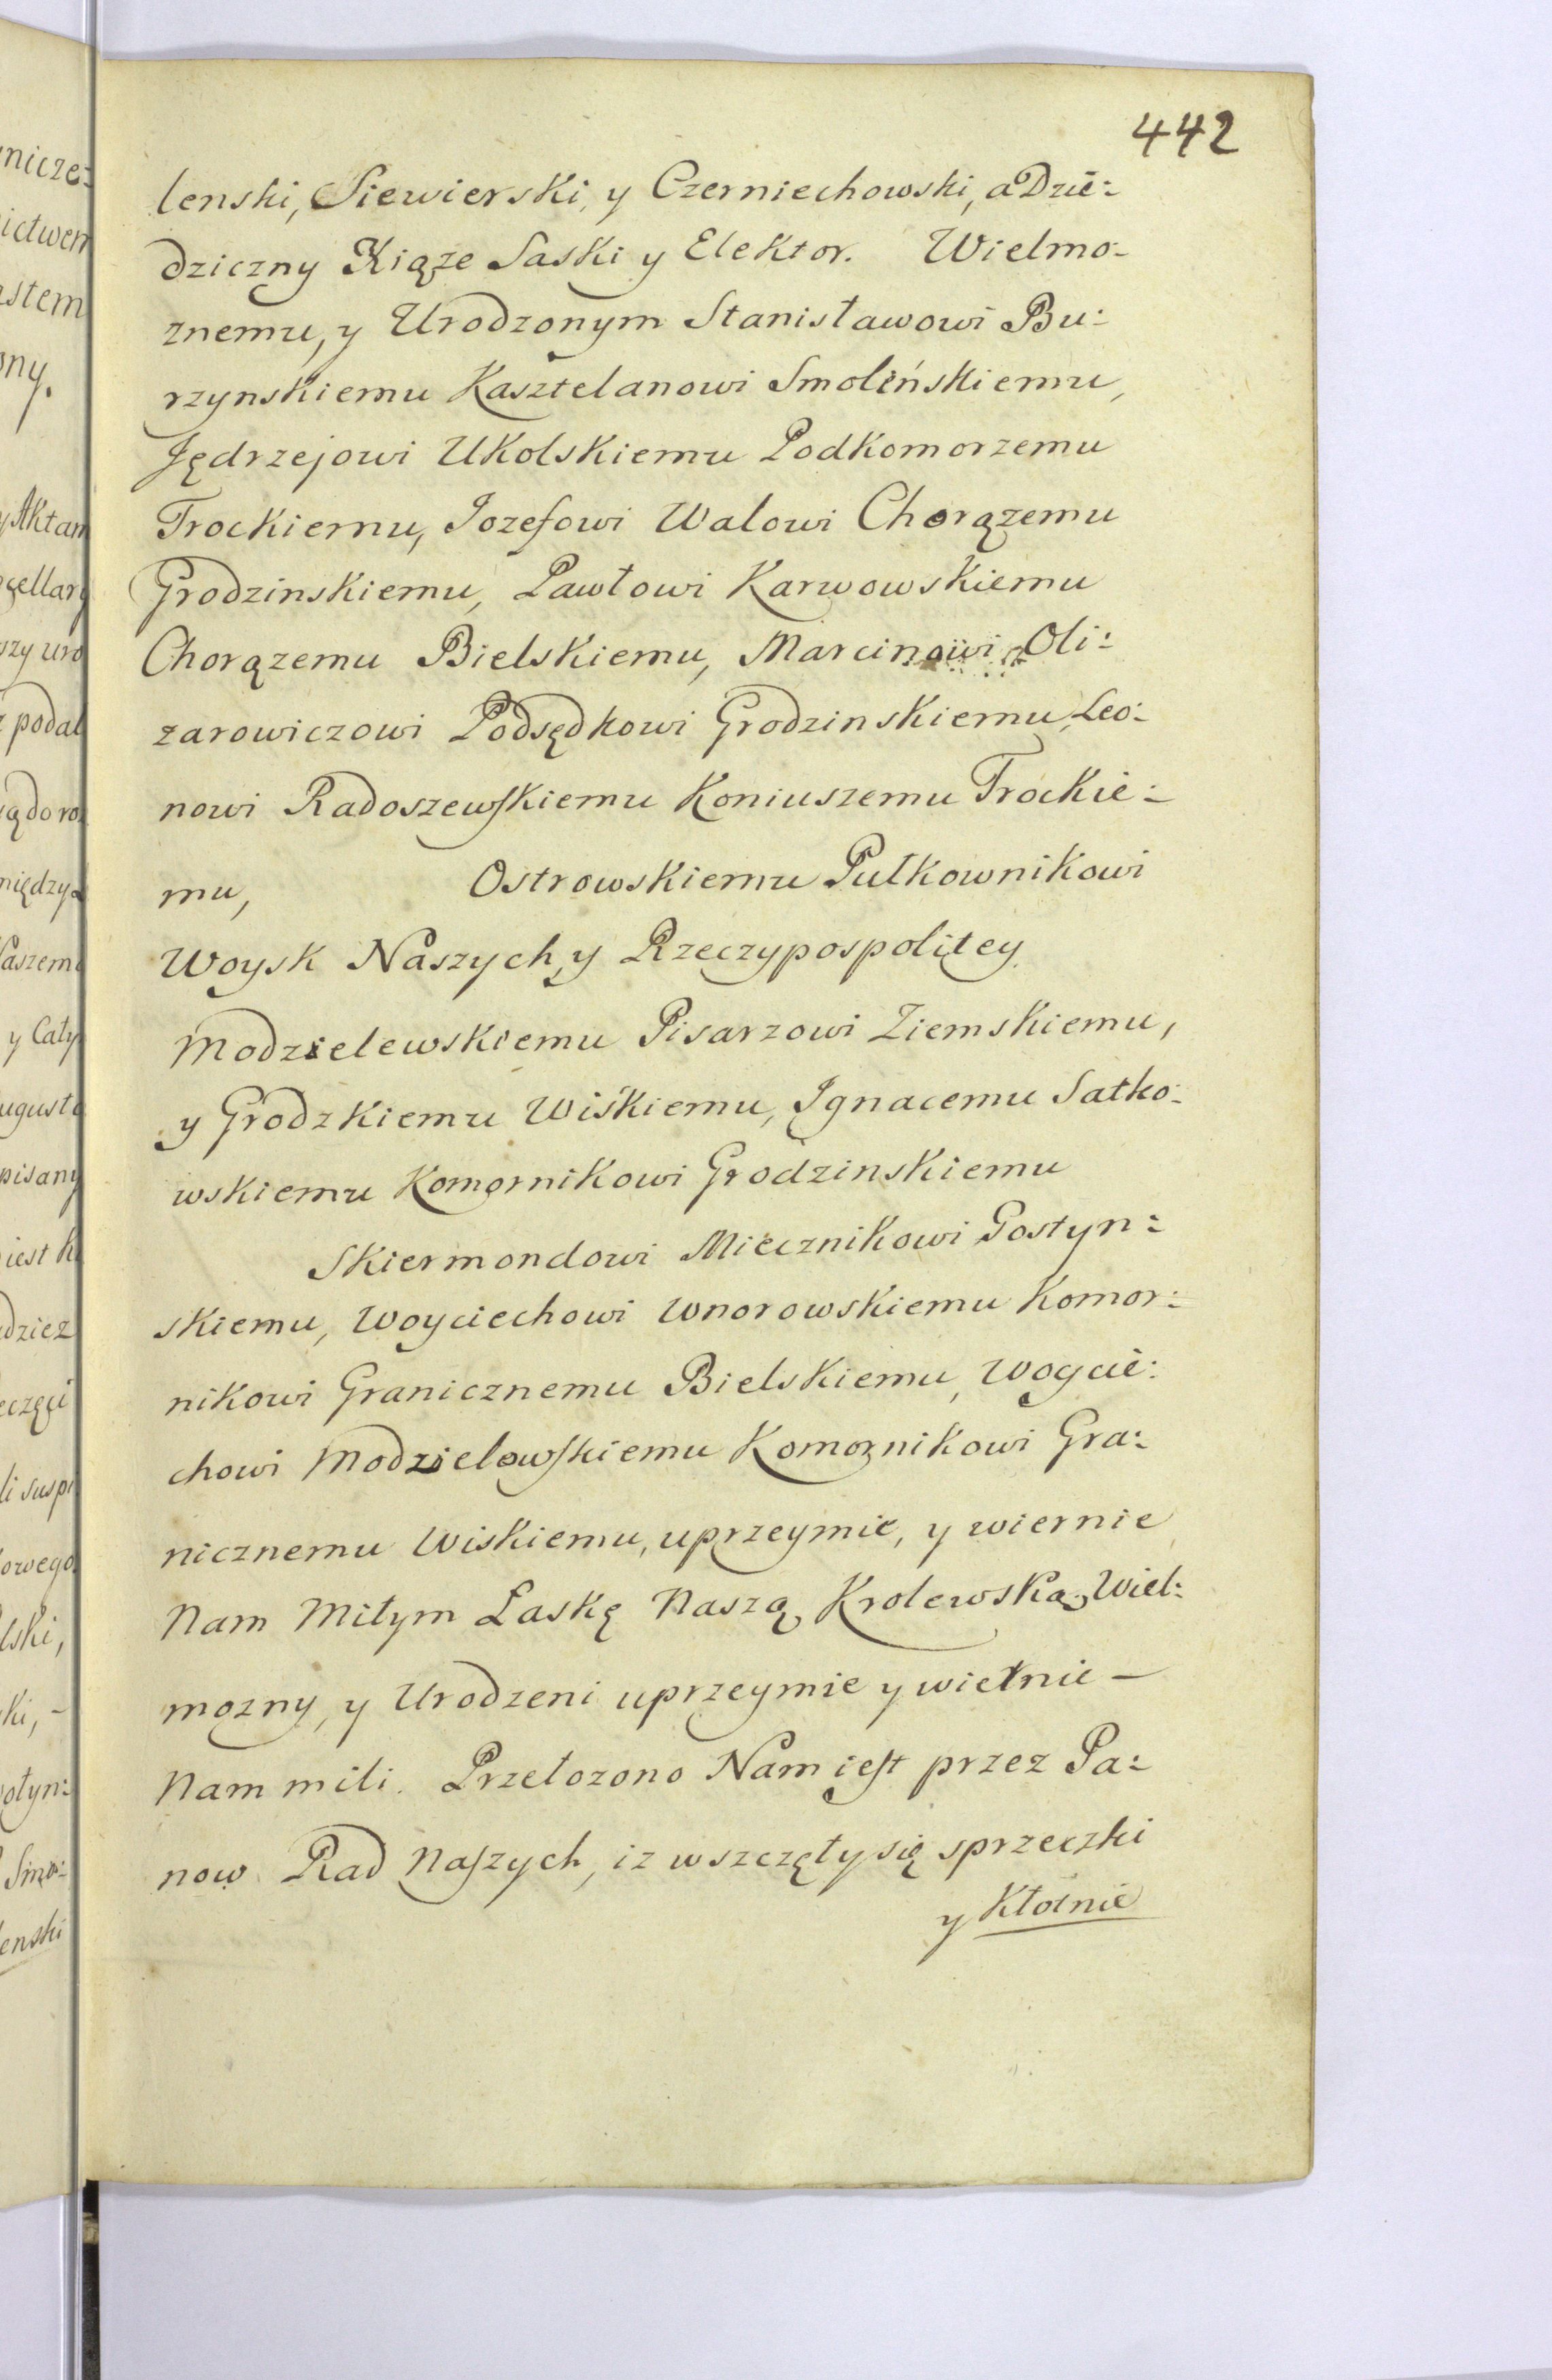 442
lenski, Siewierski, y Czerniechowski, a Dzie:
dziczny Xiąze Saski y Elektor. Wielmo:
znemu, y Urodzonym Stanisławowi Bu:
rzynskiemu Kasztelanowi Smolińskiemu,
Jędrzejowi Ukolskiemu Podkomorzemu
Trockiemu, Jozefowi Walowi Chorązemu
Grodzinskiemu, Pawłowi Karwowskiemu
Chorązemu Bielskiemu, Marcinowi Oli:
zarowiczowi Podsędkowi Grodzinskiemu, Leo:
nowi Radoszewskiemu Koniuszemu Trockie:
mu, Ostrowskiemu Pułkownikowi
Woysk Naszych, y Rzeczypospolitey
Modzielewskiemu Pisarzowi Ziemskiemu,
y Grodzkiemu Wiśkiemu, Ignacemu Satko:
wskiemu Komornikowi Grodzinskiemu
Skiermondowi Miecznikowi Gostyn:
skiemu, Woyciechowi Wnorowskiemu Komor:
nikowi Granicznemu Bielskiemu, Woycie:
chowi Modzielewskiemu Komornikowi Gra:
nicznemu Wiskiemu, uprzeymie, y wiernie
Nam Miłym Laskę Naszą Krolewską, Wiel:
mozny, y Urodzeni uprzeymie y wiernie –
Nam mili. Przełozono Nam iest przez Pa:
now Rad Naszych, iz wszczęły się sprzeczki
y Kłotnie